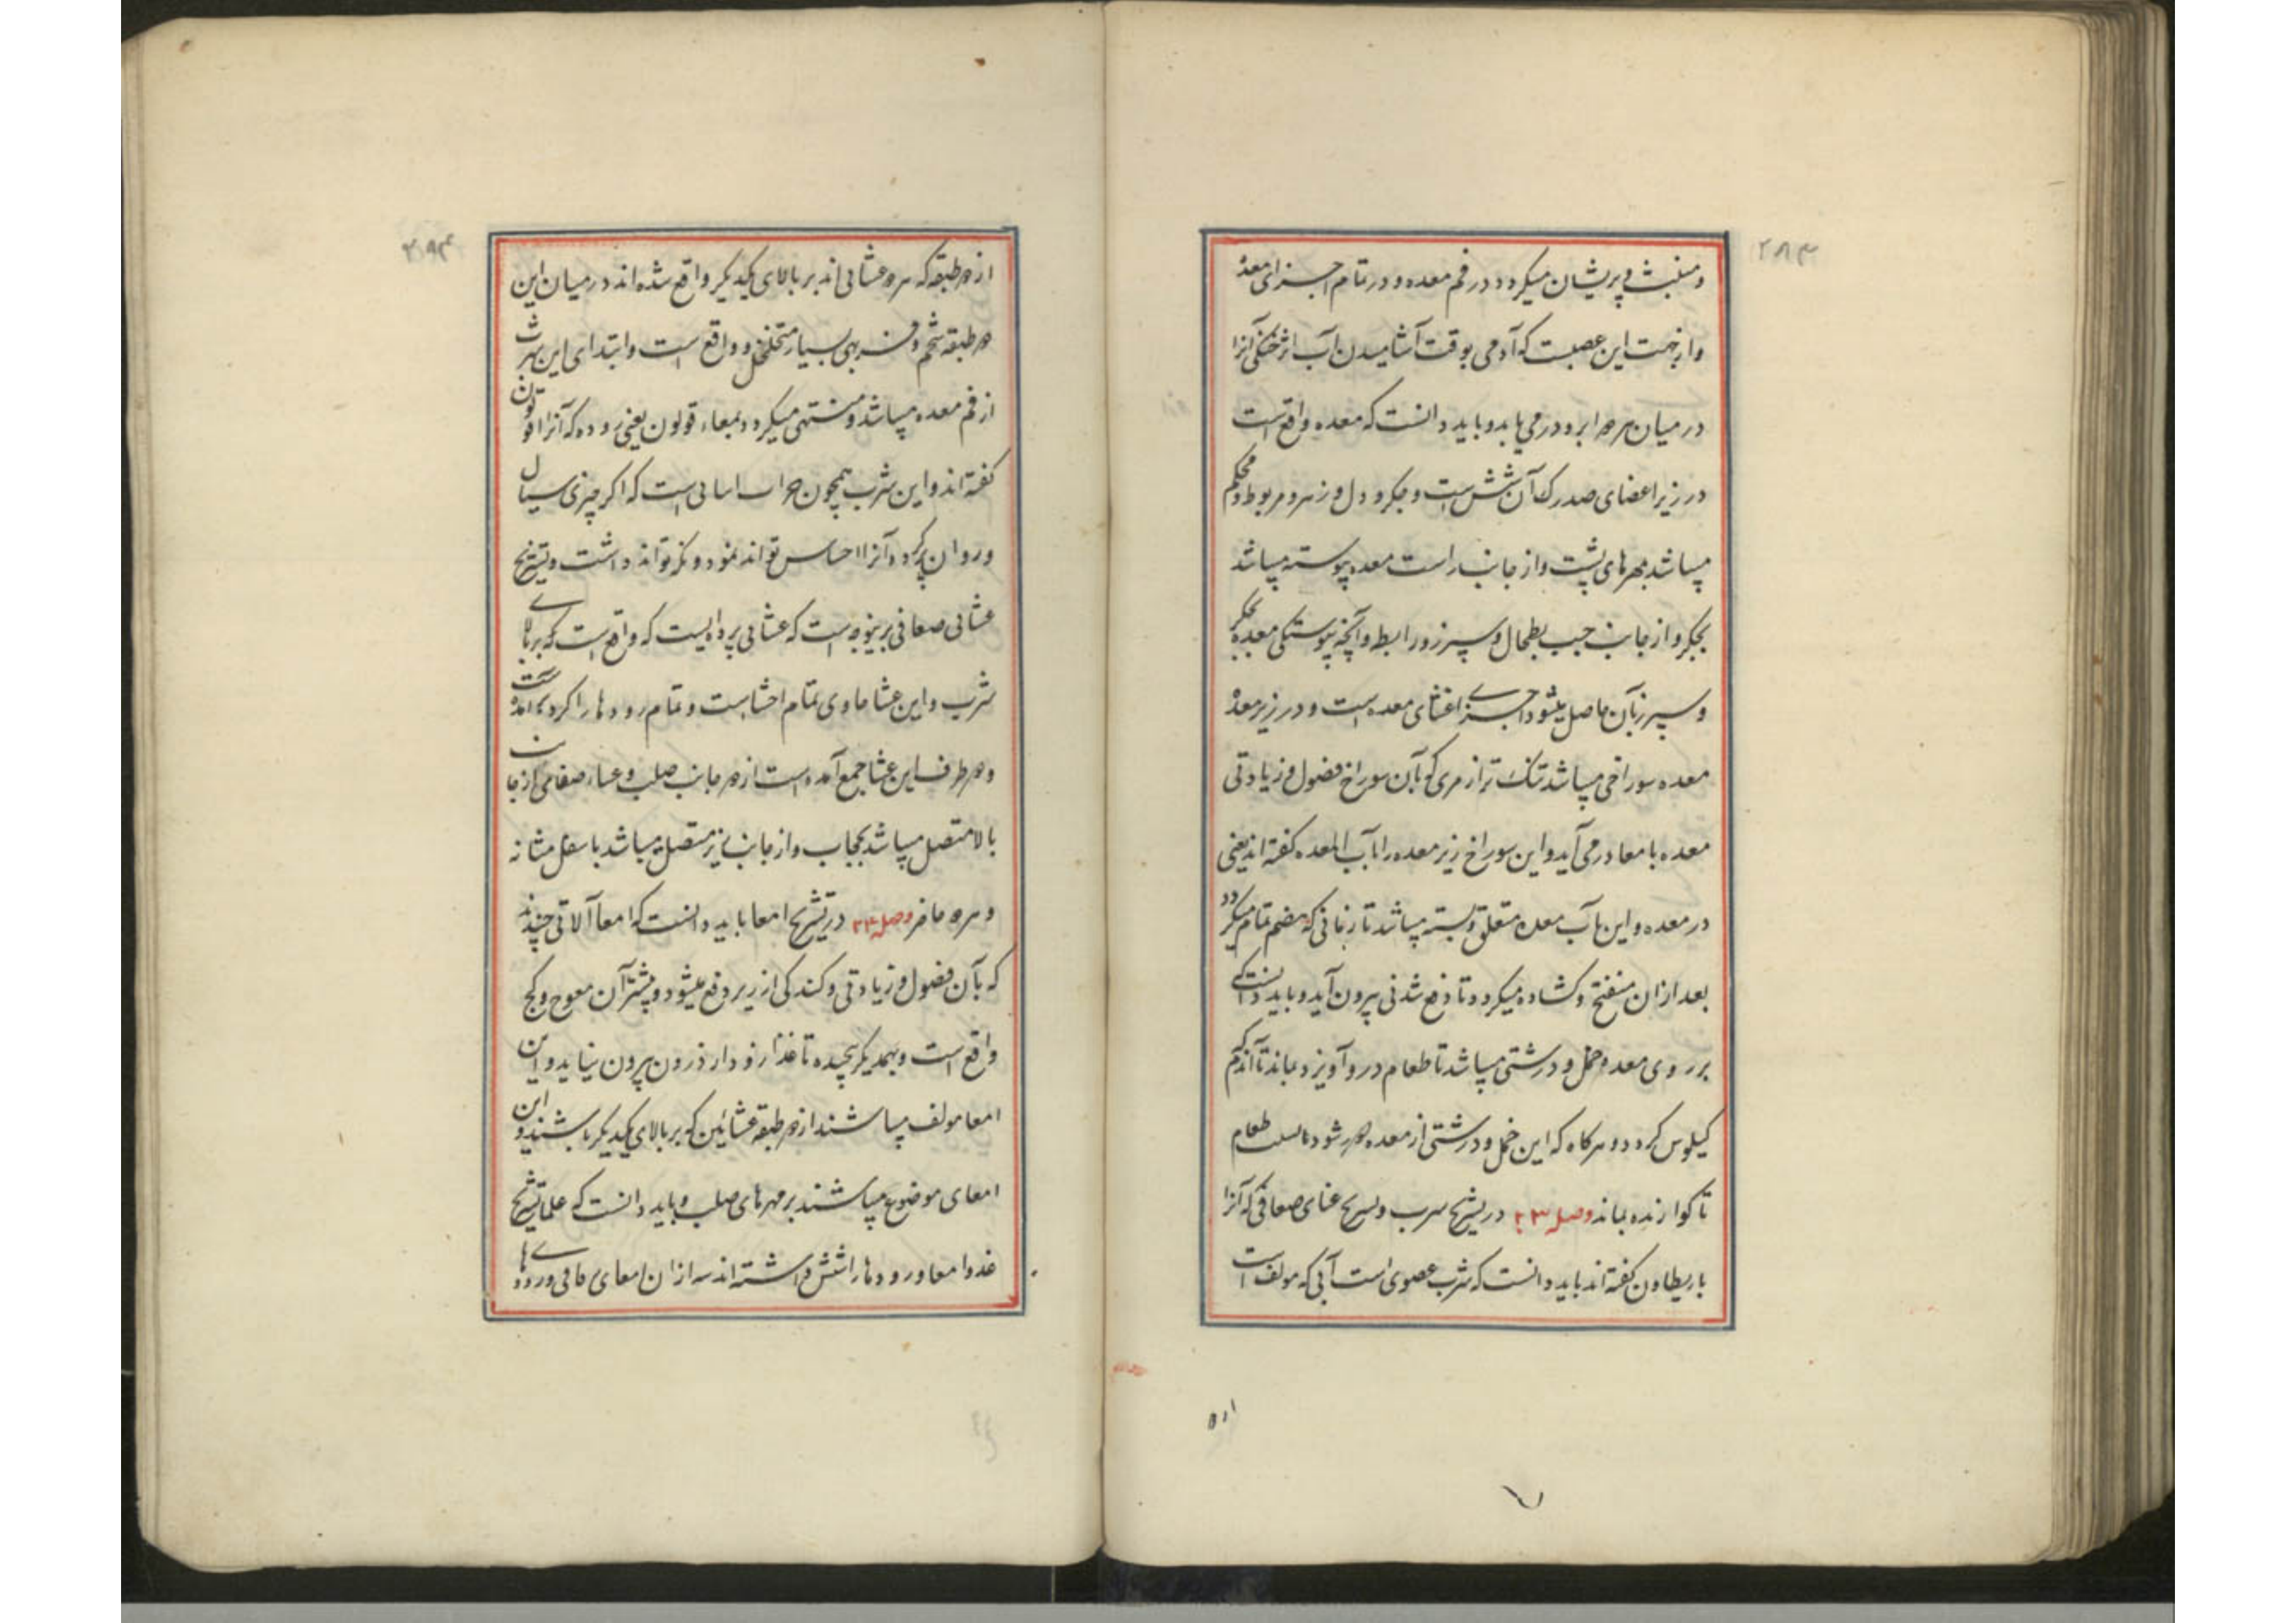 ۲۸۳
و منبث و پریشان میکردد در فم معده و در تمام اجزای معده
و از جهت این عصبست که آدمی بوقت آشامیدن آب اثر خنکی آنرا
در میان هر دو ابرو در می یابد و باید دانست که معده واقع است
در زیر اعضای صدر که آن شش است و جکر و دل و زهره و مربوط و محکم
میباشد بمهرهای پشت و از جانب راست معده پیوسته میباشد
بجکر و از جانب چپ بطحال و سپرز و رابط و آنچه پیوستکی معده بجکر
و سپرز بآن حاصل میشود اجزای اغشای معده است و در زیر معده
معده سوراخی میباشد تنک تر از مری که بآن سوراخ فضول و زیادتی
معده بامعا در می آید و این سوراخ زیر معده را باب المعده کفته اند یعنی
در معده و این باب معده متعلق و بسته میباشد تا زمانی که هضم تمام میکردد
بعد از ان منفتح و کشاده میکردد تا دفع شدنی بیرون آید و باید دانست که
بر روی معده خمل و درشتی میباشد تا طعام در و آویزد و بماند تا آندم که
کیلوس کردد و هرکاه که این خمل و درشتی از معده دور شود طعام
نا کوارنده بماند وصل ۲۳ در تشریح ثرب و تشریح غشای صفاقی که آنرا
باریطاون کفته اند باید دانست که ثرب عضوی است آبی که مولف است
۲۸۴
از دو طبقه که هر دو غشائی اند بر بالای یکدیکر واقع شده اند در میان این
دو طبقه شحم و فربهی بسیار متخلخل و واقع است و ابتدای این ثرب
از فم معده میباشد و منتهی میکردد بمعاء قولون یعنی روده که آنرا قولون
کفته اند و این ثرب همچون انبانی است که اکر چیزی سیال
و روان پر کردد آنرا احساس تواند نمود و نکه تواند داشت و تشریح
غشائی صفاقی برینوجه است که غشائی پرده ایست که واقع است که بر بالای
ثرب و این غشا حاوی تمام احشاست و تمام روده ها را کرد بر آمده است
و دو طرف این غشا جمع آمده است از دو جانب صلب و غشاء صفاقی از جانب
بالا متصل میباشد بحجاب و از جانب زیر متصل میباشد باسفل مثانه
و هر دو خاصره وصل ۲۴ در تشریح امعا باید دانست که امعا آلاتی چندند
که بآن فضول و زیادتی و کندکی از زیر دفع میشود و بیشتر آن معوج و کج
واقع است و بهمدیکر پیچیده تا غذا زود از درون بیرون نیاید و این
امعا مولف میباشند از دو طبقه غشائین که بر بالای یکدیکر باشند و این
امعای موضوع میباشند بر مهرهای صلب و باید دانست که علما تشریح
عدد امعا و روده ها را شش داشته اند سه از ان امعای دقاق و روده های